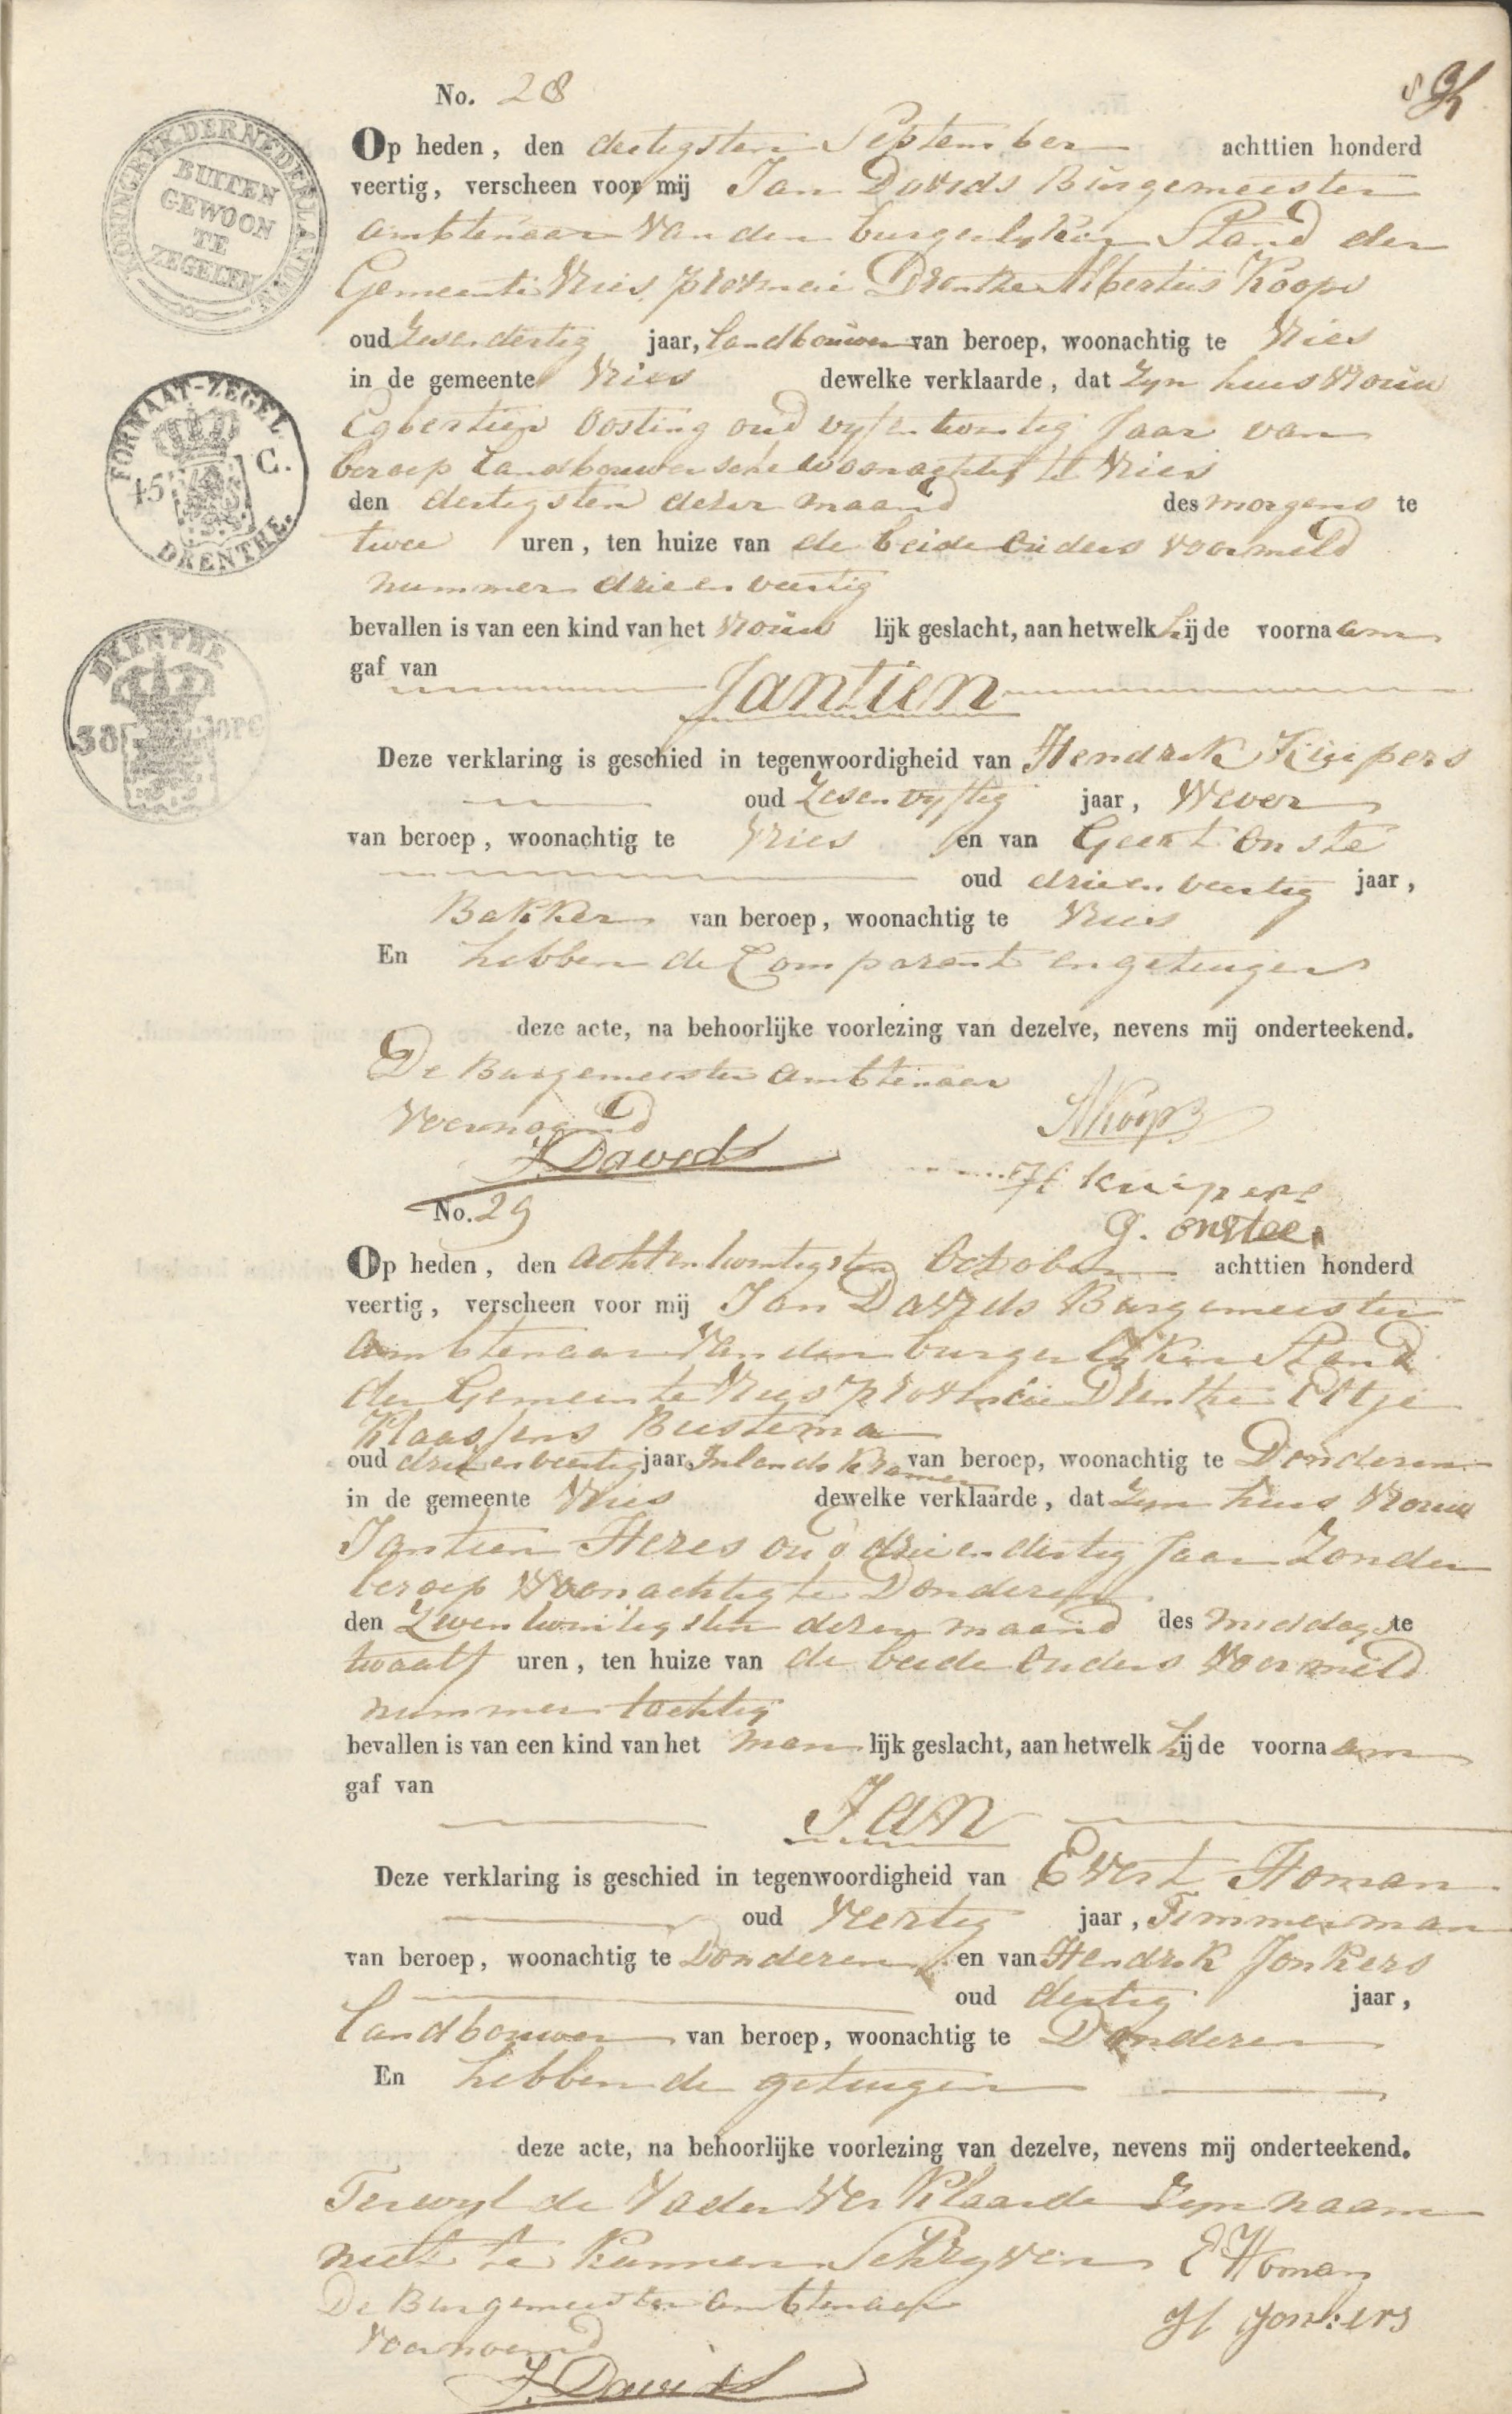 No. 28
Op heden, den dertigsten September achttien honderd
veertig, verscheen voor mij Jan Davids Burgemeester
ambtenaar van den burgerlyken Stand der
Gemeente Vries provincie Drenthe Albertus Koops
oud Zesendertig jaar, landbouwer van beroep, woonachtig te Vries
in de gemeente Vries dewelke verklaarde, dat Zyn huisvrouw
Egbertien Oosting oud vyfentwintig Jaar van
beroep Landbouwersche woonachtig te Vries
den dertigsten dezer maand des morgens te
twee uren, ten huize van de beide Ouders voormeld
nummer drieenveertig
bevallen is van een kind van het vrouw lijk geslacht, aan hetwelk hij de voornaam
gaf van Jantien
Deze verklaring is geschied in tegenwoordigheid van Hendrik Kuipers
oud Zesenvyftig jaar, Wever
van beroep, woonachtig te Vries en van Geert Onste
oud drieenveertig jaar,
Bakker van beroep, woonachtig te Vries
En hebben de Comparent en getuigen
deze acte, na behoorlijke voorlezing van dezelve, nevens mij onderteekend.
De Burgemeester Ambtenaar
voornoemd
J. Davids
A Koops
H kuipers
G. onstee
No. 29
Op heden, den achtentwintigsten October achttien honderd
veertig, verscheen voor mij Jan Davids Burgemeester
Ambtenaar van den burgerlyken Stand
der Gemeente Vries provincie Drenthe Eltje
Klaassens Bustema
oud drieenveertig jaar, Inlands kramer van beroep, woonachtig te Donderen
in de gemeente Vries dewelke verklaarde, dat Zyn huisvrouw
Jantien Heres oud drieendertig Jaar Zonder
beroep woonachtig te Donderen
den Zevenentwintigsten dezer maand des middags te
twaalf uren, ten huize van de beide Ouders voormeld
nummer tachtig
bevallen is van een kind van het man lijk geslacht, aan hetwelk hij de voornaam
gaf van Jan
Deze verklaring is geschied in tegenwoordigheid van Evert Homan
oud veertig jaar, Timmerman
van beroep, woonachtig te Donderen en van Hendrik Jonkers
oud dertig jaar,
Landbouwer van beroep, woonachtig te Donderen
En hebben de getuigen
deze acte, na behoorlijke voorlezing van dezelve, nevens mij onderteekend.
Terwyl de Vader verklaarde Zyn naam
niet te kunnen Schryven
E Homan
De Burgemeester ambtenaar
H jonkers
voornoemd
J. Davids
KONINGRYK DER NEDERLANDEN
BUITEN
GEWOON
TE
ZEGELEN
FORMAAT-ZEGEL
45 C.
DRENTHE.
DRENTHE
38 OPC